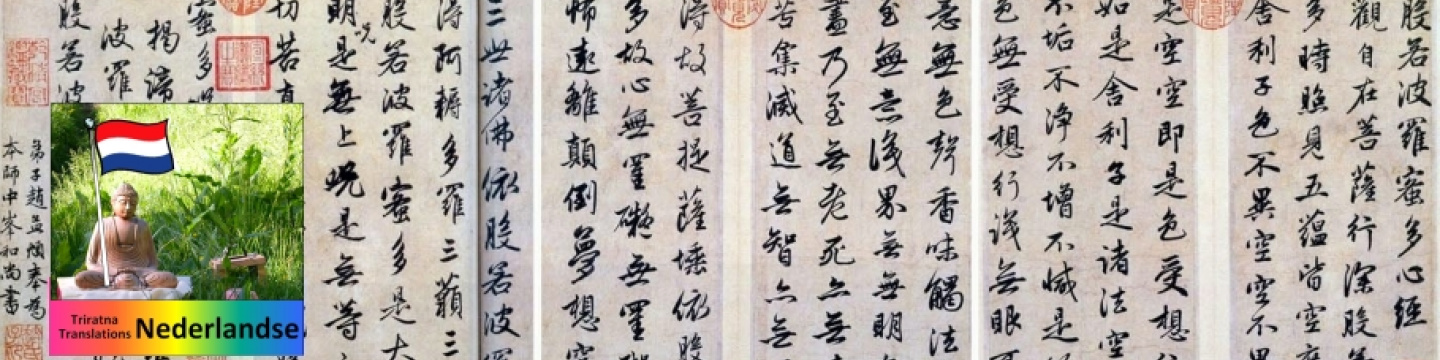 般若波羅蜜多心經
觀自在菩薩行深般
多時照見五蘊皆空
舍利子色不異空空不
是空空即是色受想
如是舍利子是諸法空
不垢不淨不增不減是
色無受想行識無眼
意無色聲香味觸法
至無意識界無無明
盡乃至無老死亦無
苦集滅道無智亦無
得故菩提薩埵依般
多故心無罣礙無罣
怖遠離顛倒夢想
三世諸佛依般若波
得阿耨多羅三藐三
般若波羅蜜多是大
明呪是無上呪是無等
切苦真
蜜多
揭諦
波羅
般若波
弟子趙孟頫奉為
本師中峯和尚書
Triratna
Translations
Nederlandse